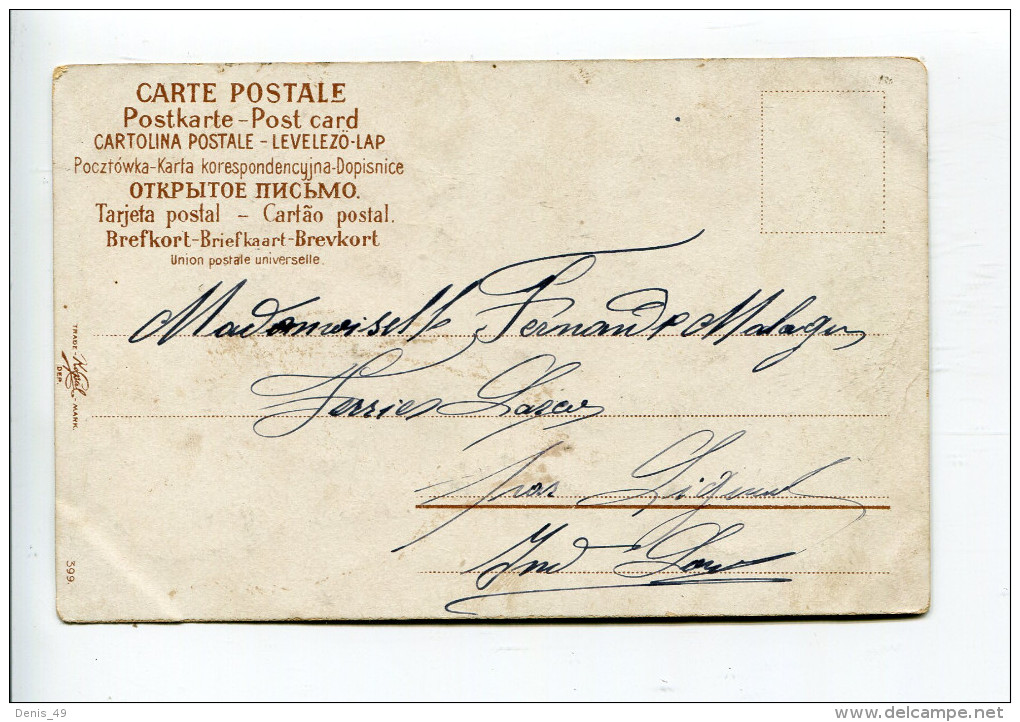 CARTE POSTALE
Postkarte-Post card
CARTOLINA POSTALE - LEVELEZÖ-LAP
Pocztówka-Karta korespondencyjna-Dopisnice
ОТКРЫТОЕ ПИСЬМО.
Tarjeta postal - Cartão postal.
Brefkort-Briefkaart-Brevkort
Union postale universelle.
Mademoiselle Fernande
par
TRADE- -MARK.
DEP.
399.
Denis_49
delcampe.net